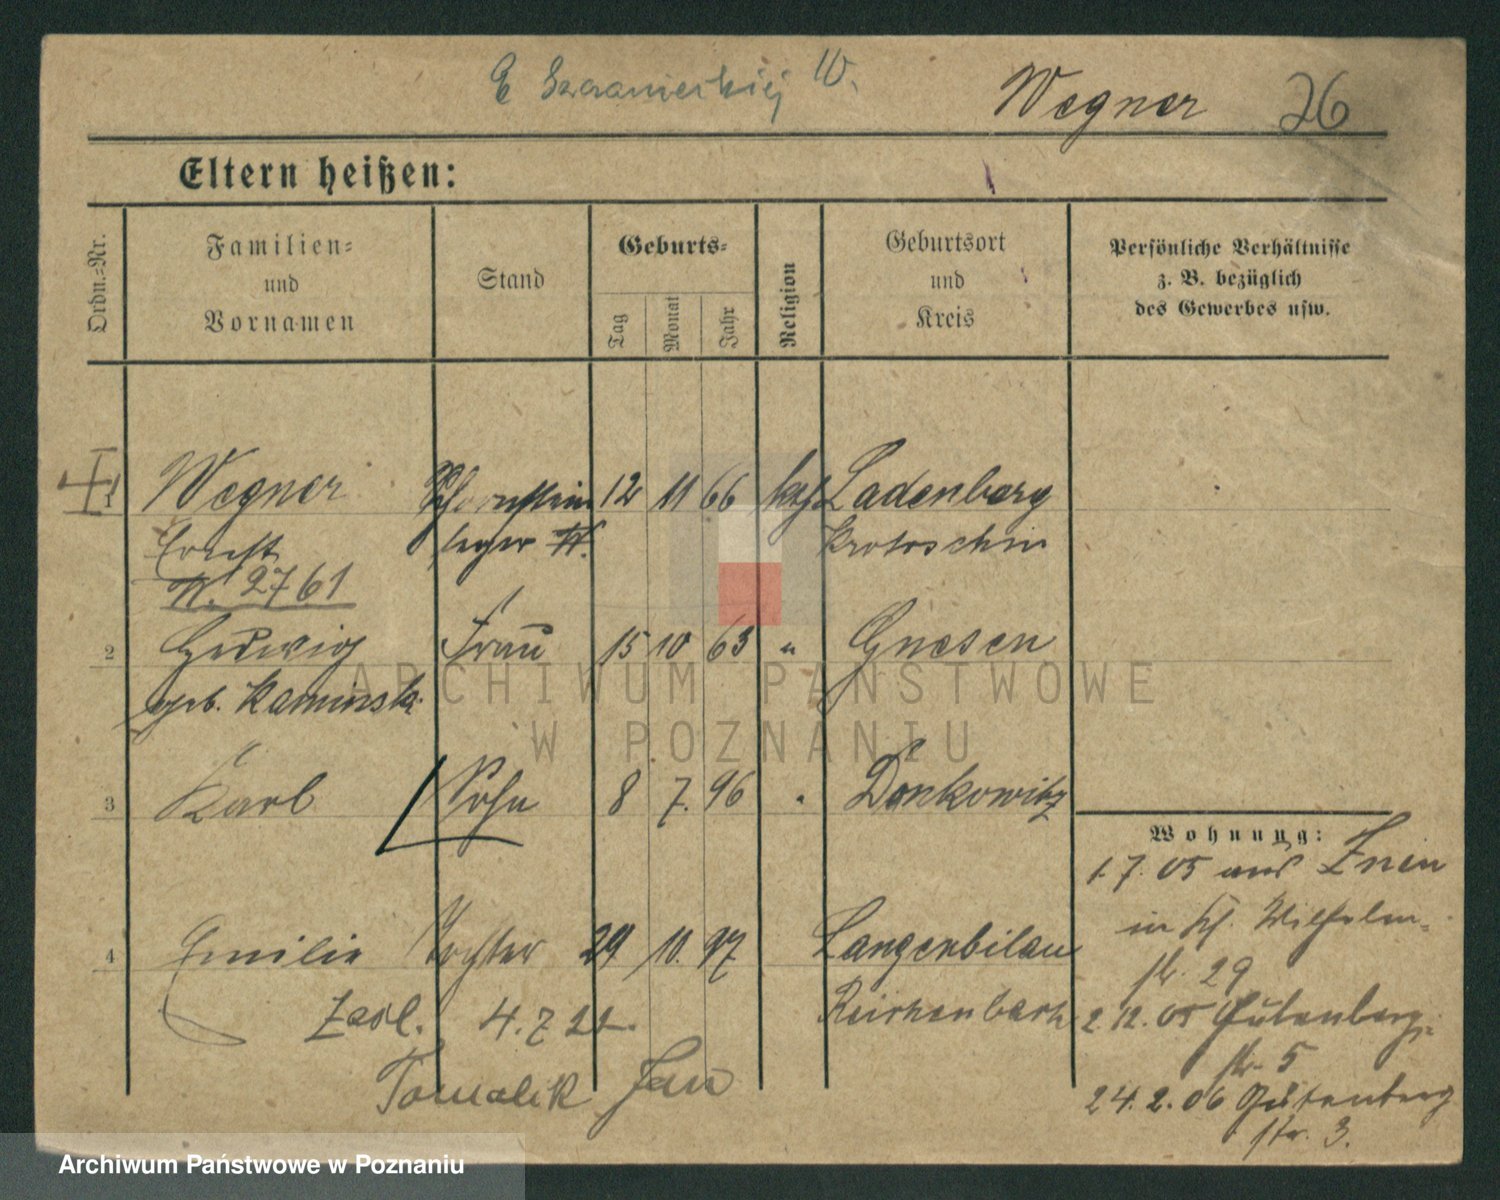 Wegner 26
Eltern heißen:
Ordn.=Nr.
Familien=
und
Vornamen
Stand
Geburts=
Tag
Monat
Jahr
Religion
Geburtsort
und
Kreis
Persönliche Verhältnisse
z. B. bezüglich
des Gewerbes usw.
1 Wegner Schornstein 12 11 66 kath Ladenberg
Ernst feger Krotoschin
N. 2761
2 Hedwig Frau 15 10 63 " Gnesen
geb. Kaminski
3 Karl Sohn 8 7. 96 " Donkowitz
Wohnung:
1.7.05 aus Znin
in Wilhelm-
str. 29
4 Emilie Tochter 29 10. 97 Langenbilau
Reichenbach
2.12.05 Gutenberg-
str. 5
zasl. 4.7 22.
Tomalik Jan
24.2.06 Gutenberg
str. 3.
ARCHIWUM PAŃSTWOWE
W POZNANIU
Archiwum Państwowe w Poznaniu